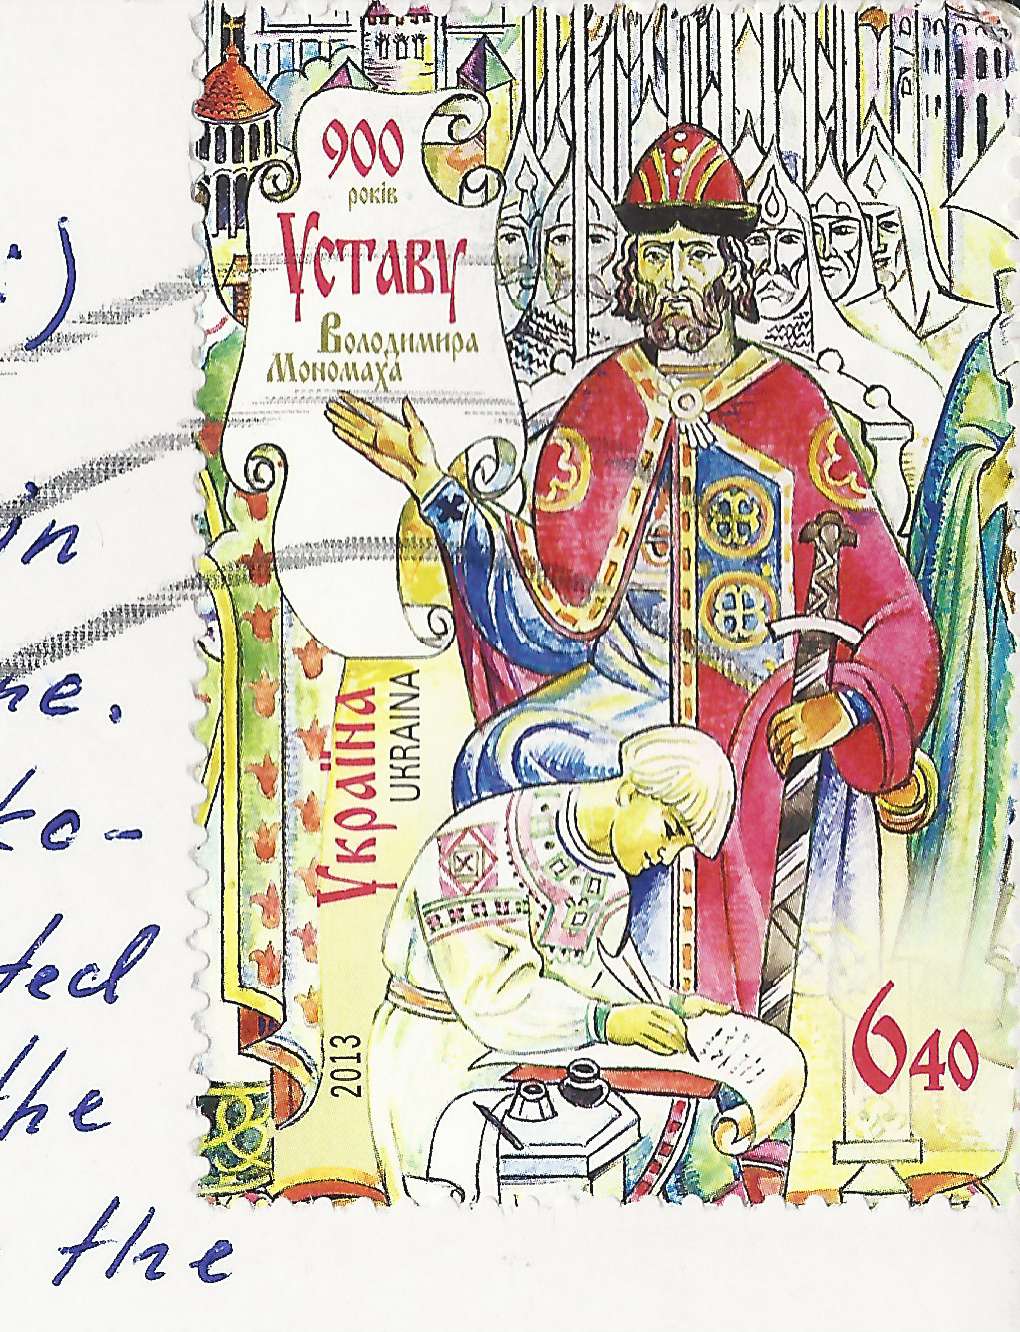 :)
in
ko-
ted
the
the
900
років
Уставу
Володимира
Мономаха
Україна
UKRAINA
2013
640